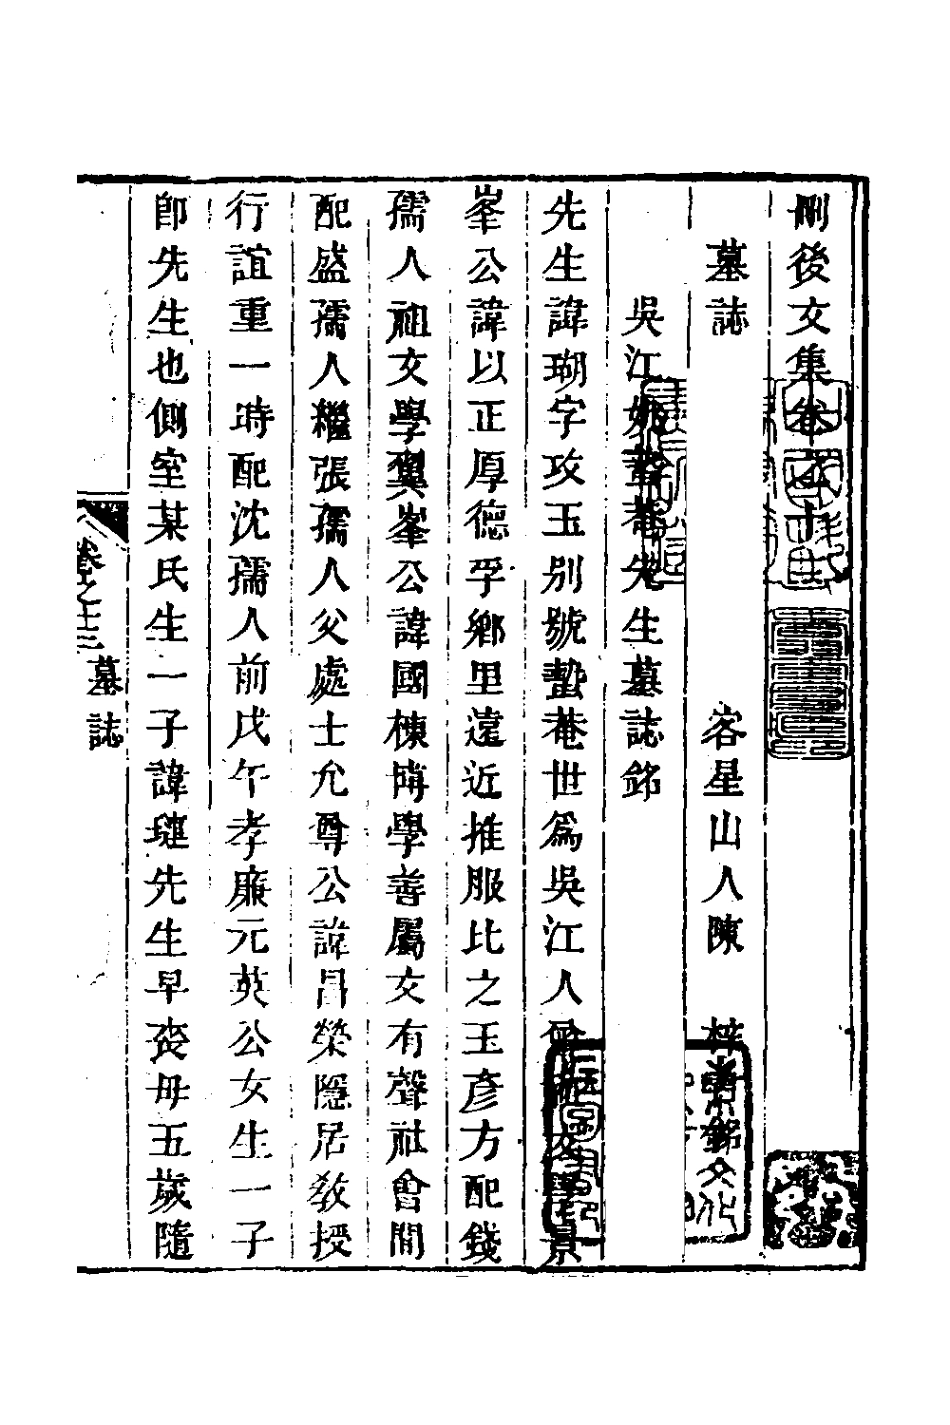 刪後文集卷之十
墓誌　客星山人陳　梓　銘
吳江姚蟄菴先生墓誌銘
先生諱瑚字攻玉別號蟄菴世爲吳江人曾祖文學景
峯公諱以正厚德孚鄉里遠近推服比之玉彥方配錢
孺人祖文學翼峯公諱國棟博學善屬文有聲社會間
配盛孺人繼張孺人父處士允尊公諱昌榮隱居敎授
行誼重一時配沈孺人前戌午孝廉元英公女生一子
卽先生也側室某氏生一子諱璉先生早喪母五歲隨
卷之十二　墓誌